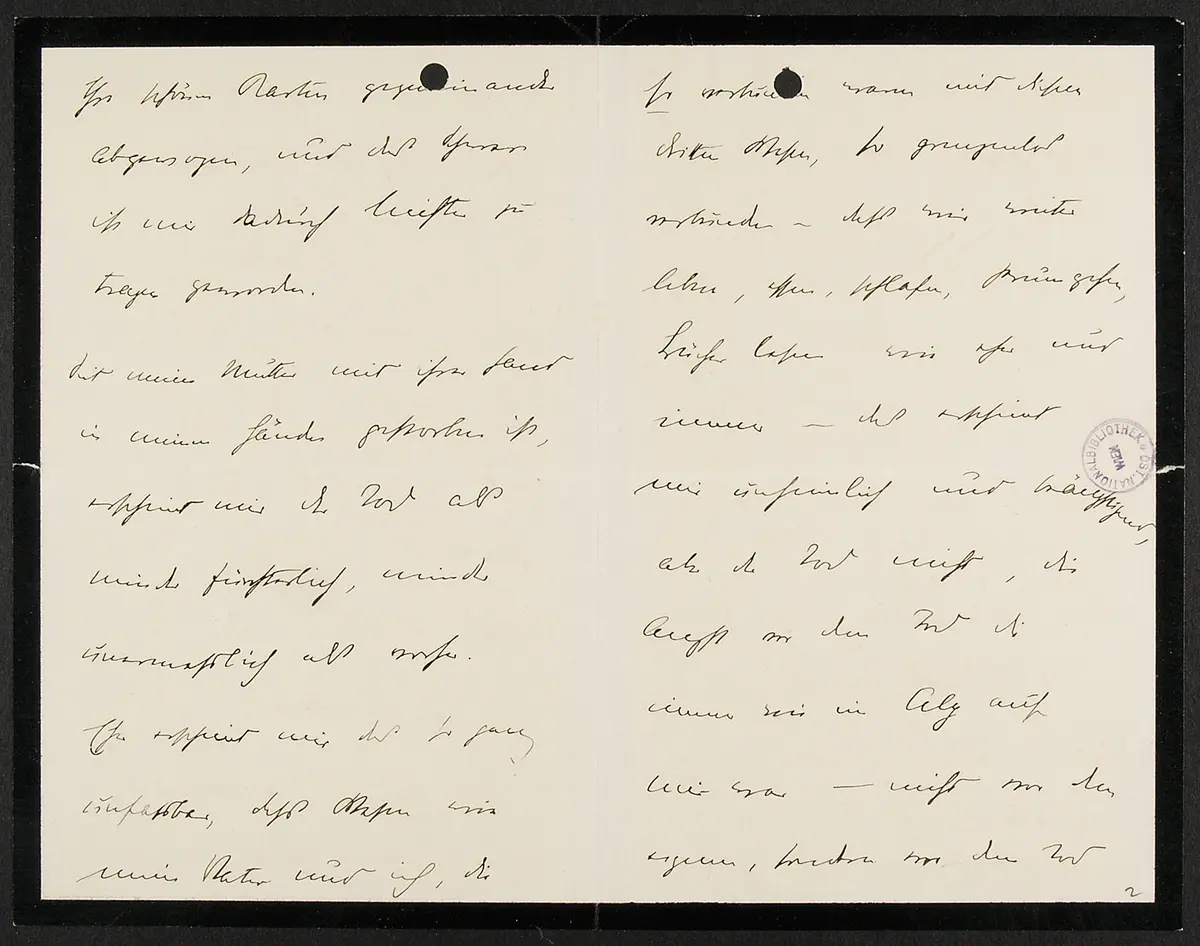 Ihre schönen Karten gegeneinander
abgewogen, und das Schwere
ist mir dadurch leichter zu
tragen geworden.
Seit meine Mutter mit ihrer Hand
in meinen Händen gestorben ist,
erscheint mir der Tod als
minder fürchterlich, minder
unermeßlich als vorher.
Eher erscheint mir das so ganz
unfassbar, daß Wesen wie
mein Vater und ich, die
so verbunden waren mit diesem
dritten Wesen, so grenzenlos
verbunden – daß wir weiter
leben, essen, schlafen, herumgehen,
Bücher lesen wie eher und
immer – das erscheint
mir unheimlich und beängstigend,
aber der Tod nicht, die
Angst vor dem Tod die
immer wie ein Alp auf
mir war – nicht vor dem
eigenen, sondern vor dem Tod
ÖST. NATIONALBIBLIOTHEK
WIEN
2